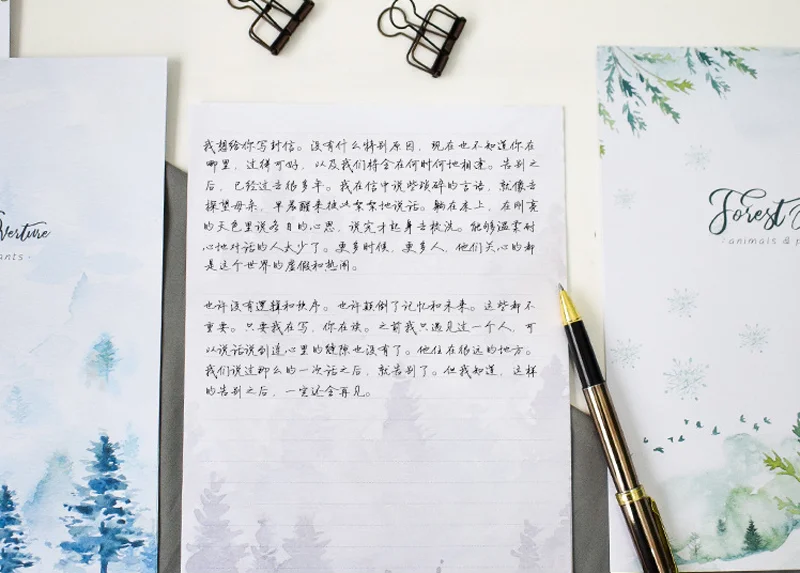 我想给你写封信。没有什么特别原因，现在也不知道你在
哪里，过得可好，以及我们将会在何时何地相逢。告别之
后，已经过去很多年。我在信中说些琐碎的言语，就像去
探望母亲，早晨醒来彼此絮絮地说话。躺在床上，在刚亮
的天色里说各自的心思，说完才起身去梳洗。能够温柔耐
心地对话的人太少了。更多时候，更多人，他们关心的都
是这个世界的虚假和热闹。
也许没有逻辑和秩序。也许颠倒了记忆和未来。这些都不
重要。只要我在写，你在读。之前我只遇见过一个人，可
以说话说到连心里的缝隙也没有了。他住在很远的地方。
我们说过那么的一次话之后，就告别了。但我知道，这样
的告别之后，一定还会再见。
Forest
animals & p
venture
ants